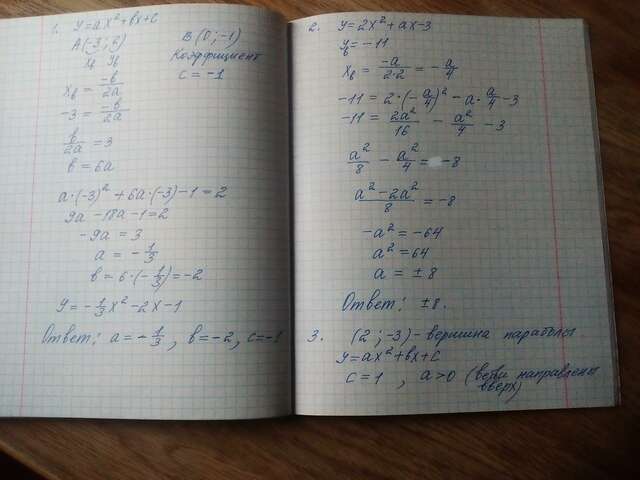 1. y = ax² + bx + c
A(-3; 2) B(0; -1)
x_в y_в Коэффициент
x_в = -b/2a c = -1
-3 = -b/2a
b/2a = 3
b = 6a
a·(-3)² + 6a·(-3) - 1 = 2
9a - 18a - 1 = 2
-9a = 3
a = -1/3
b = 6·(-1/3) = -2
y = -1/3x² - 2x - 1
Ответ: a = -1/3, b = -2, c = -1
2. y = 2x² + ax - 3
y_в = -11
x_в = -a/2·2 = -a/4
-11 = 2·(-a/4)² - a·a/4 - 3
-11 = 2a²/16 - a²/4 - 3
a²/8 - a²/4 = -8
a² - 2a²/8 = -8
-a² = -64
a² = 64
a = ±8
Ответ: ±8.
3. (2; -3) - вершина параболы
y = ax² + bx + c
c = 1, a > 0 (ветви направлены
вверх)